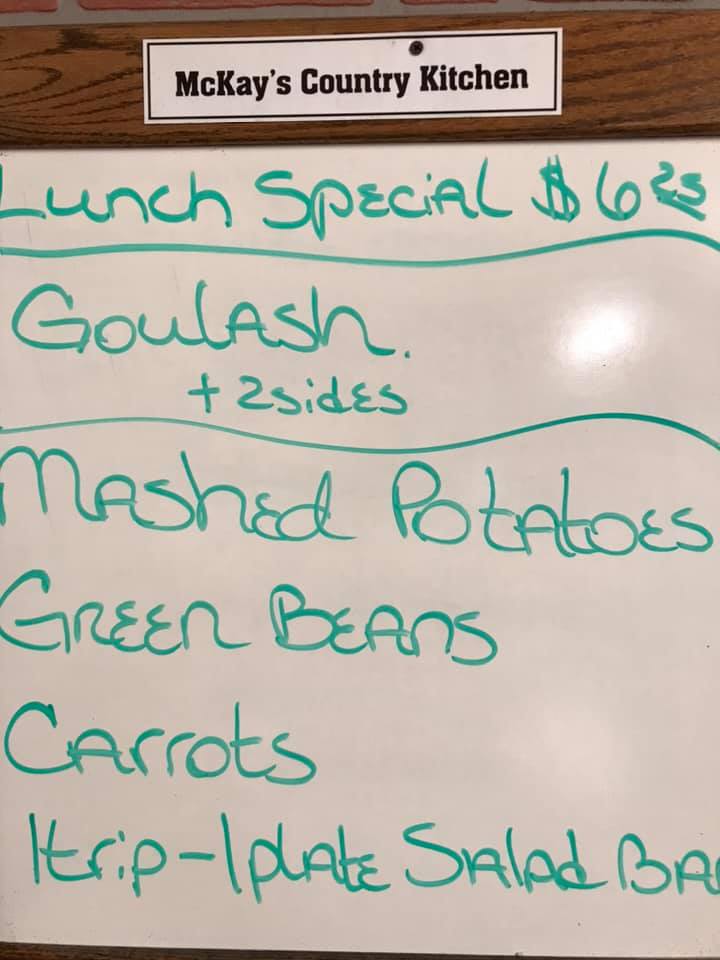 McKay's Country Kitchen
Lunch Special $6 25
Goulash.
+ 2 sides
Mashed Potatoes
Green Beans
Carrots
1 trip - 1 plate Salad Ba